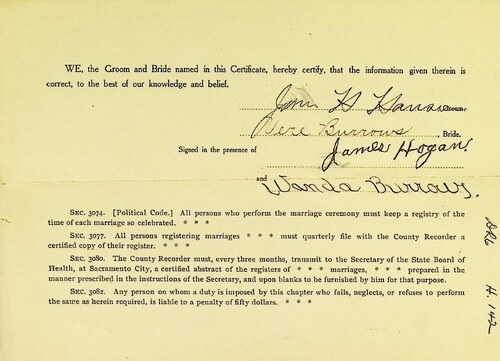 WE, the Groom and Bride named in this Certificate, hereby certify, that the information given therein is
correct, to the best of our knowledge and belief.
H
Burrows , Bride.
Signed in the presence of James Hogan.
and
Wanda Burrows.
SEC. 3074. [Political Code.] All persons who perform the marriage ceremony must keep a registry of the
time of each marriage so celebrated. * * *
SEC. 3077. All persons registering marriages * * * must quarterly file with the County Recorder a
certified copy of their register. * * *
SEC. 3080. The County Recorder must, every three months, transmit to the Secretary of the State Board of
Health, at Sacramento City, a certified abstract of the registers of * * * marriages, * * * prepared in the
manner prescribed in the instructions of the Secretary, and upon blanks to be furnished by him for that purpose.
SEC. 3082. Any person on whom a duty is imposed by this chapter who fails, neglects, or refuses to perform
the same as herein required, is liable to a penalty of fifty dollars. * * *
H. 142